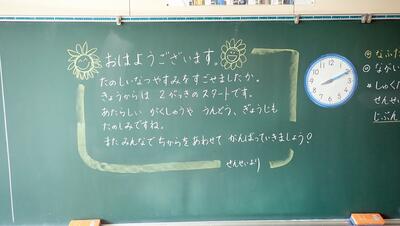 おはようございます。
たのしいなつやすみをすごせましたか。
きょうからは 2がっきのスタートです。
あたらしい がくしゅうや うんどう、ぎょうじも
たのしみですね。
またみんなで ちからをあわせて がんばっていきましょう?
せんせいより
なふだ
ながい
しゅくだ
せんせい
じぶん